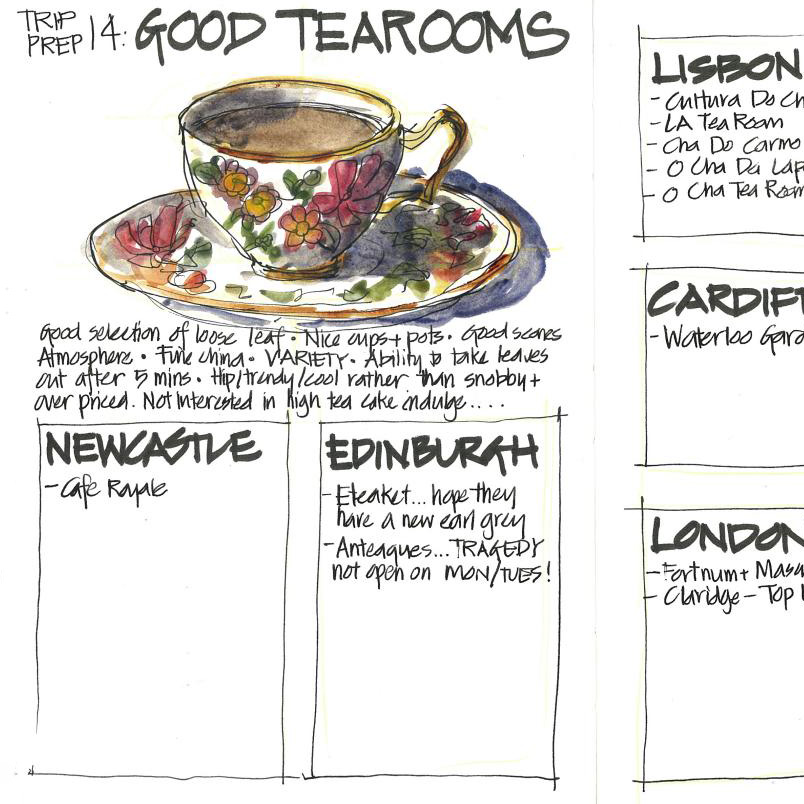 TRIP
PREP 14: GOOD TEAROOMS
Good selection of loose leaf • Nice cups + pots • Good scones
Atmosphere • Fine china • VARIETY • Ability to take leaves
out after 5 mins • Hip/trendy/cool rather than snobby +
over priced. Not Interested in high tea cake indulge....
NEWCASTLE
- Cafe Royale
EDINBURGH
- Eteaket... hope they
have a new earl grey
- Anteaques... TRAGEDY
not open on MON/TUES!
LISBON
- Cultura Do Ch
- LA Tea Room
- Cha Do Carmo
- O Cha Da Lap
- O Cha Tea Room
CARDIFF
- Waterloo Gard
LONDON
- Fortnum + Maso
- Claridge - Top